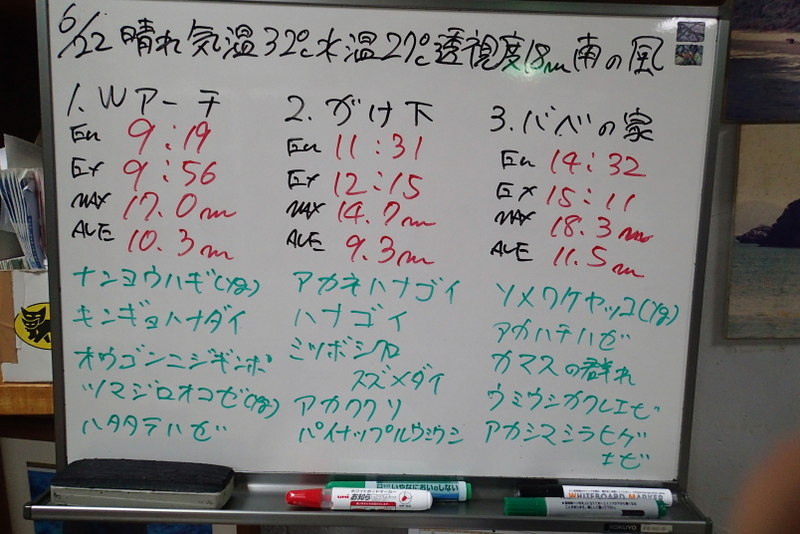 6/22 晴れ 気温32℃ 水温27℃ 透視度18m 南の風
1. Wアーチ
En 9:19
Ex 9:56
MAX 17.0m
AVE 10.3m
ナンヨウハギ(yg)
キンギョハナダイ
オウゴンニジギンポ
ツマジロオコゼ(yg)
ハタタテハゼ
2. がけ下
En 11:31
Ex 12:15
MAX 14.7m
AVE 9.3m
アカネハナゴイ
ハナゴイ
ミツボシクロ
スズメダイ
アカククリ
パイナップルウミウシ
3. バベの家
En 14:32
Ex 15:11
MAX 18.3m
AVE 11.5m
ソメワケヤッコ(yg)
アカハチハゼ
カマスの群れ
ウミウシカクレエビ
アカシマシラヒゲ
エビ
いやなにおいのしない
ホワイトボードマーカー
uni お知らせ
WHITEBOARD MARKER
KOKUYO